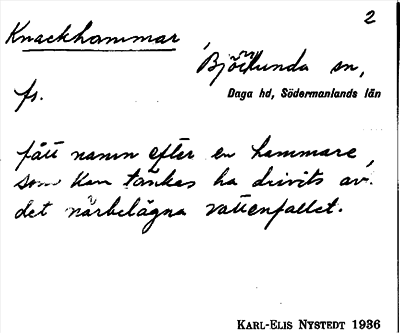 2
Knackhammar,
Björnlunda sn,
fs.
Daga hd, Södermanlands län
fått namn efter en hammare,
som kan tänkas ha drivits av
det närbelägna vattenfallet.
KARL-ELIS NYSTEDT 1936